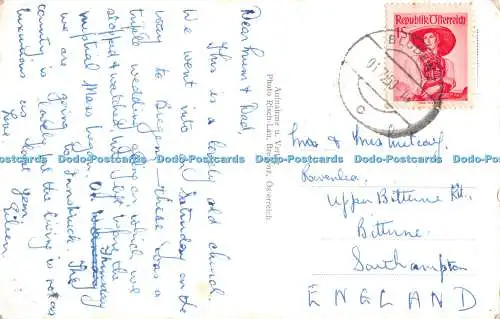 Dear Mum & Dad,
This is a lovely old church.
We went into it on Saturday on the
way to Bregenz – there was a
triple wedding going on which we
stopped & watched. We left before the
nuptial Mass began. On Thursday
we are going to Innsbruck. The
country is lovely but the living is not as
luxurious as last year.
Love
Eileen.
Aufnahme u. Verlag
Photo Risch-Lau, Bregenz, Österreich
Republik Österreich
15
Mr & Mrs Metcalf
Ravenlea
Upper Bitterne Rd.
Bitterne
Southampton
ENGLAND
Dodo Postcards Dodo Postcards Dodo Postcards Dodo Postcards Dodo Postcards Dodo Postcards